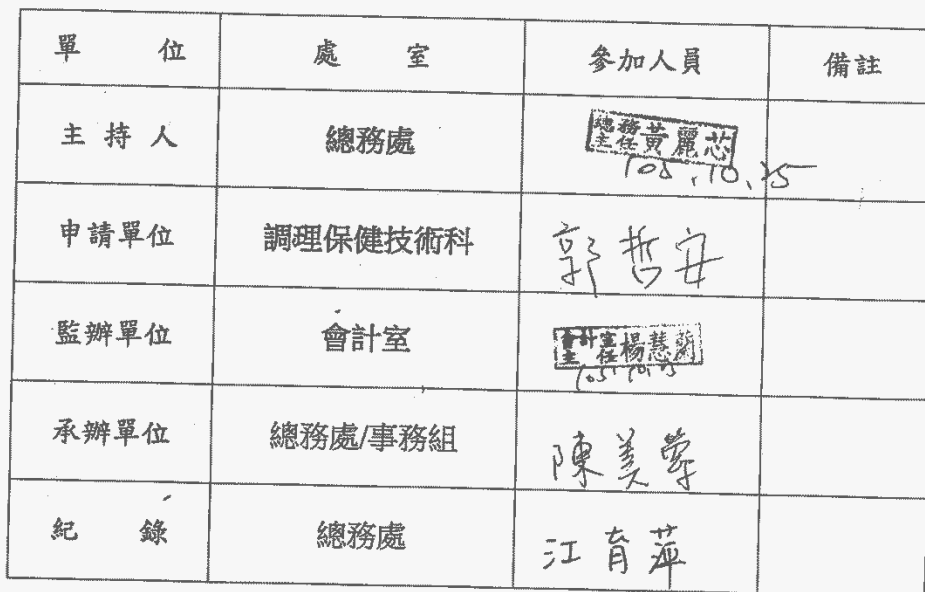 單 位 處 室 參加人員 備註
主 持 人 總務處 總務主任 黃麗芯
105.10.25
申請單位 調理保健技術科 郭哲安
監辦單位 會計室 會計室主任 楊慧蘭
105.10.25
承辦單位 總務處/事務組 陳美
紀 錄 總務處 江育萍